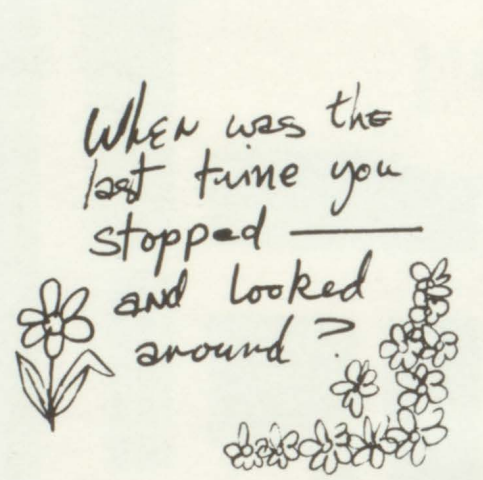 When was the
last time you
stopped —
and looked
around?